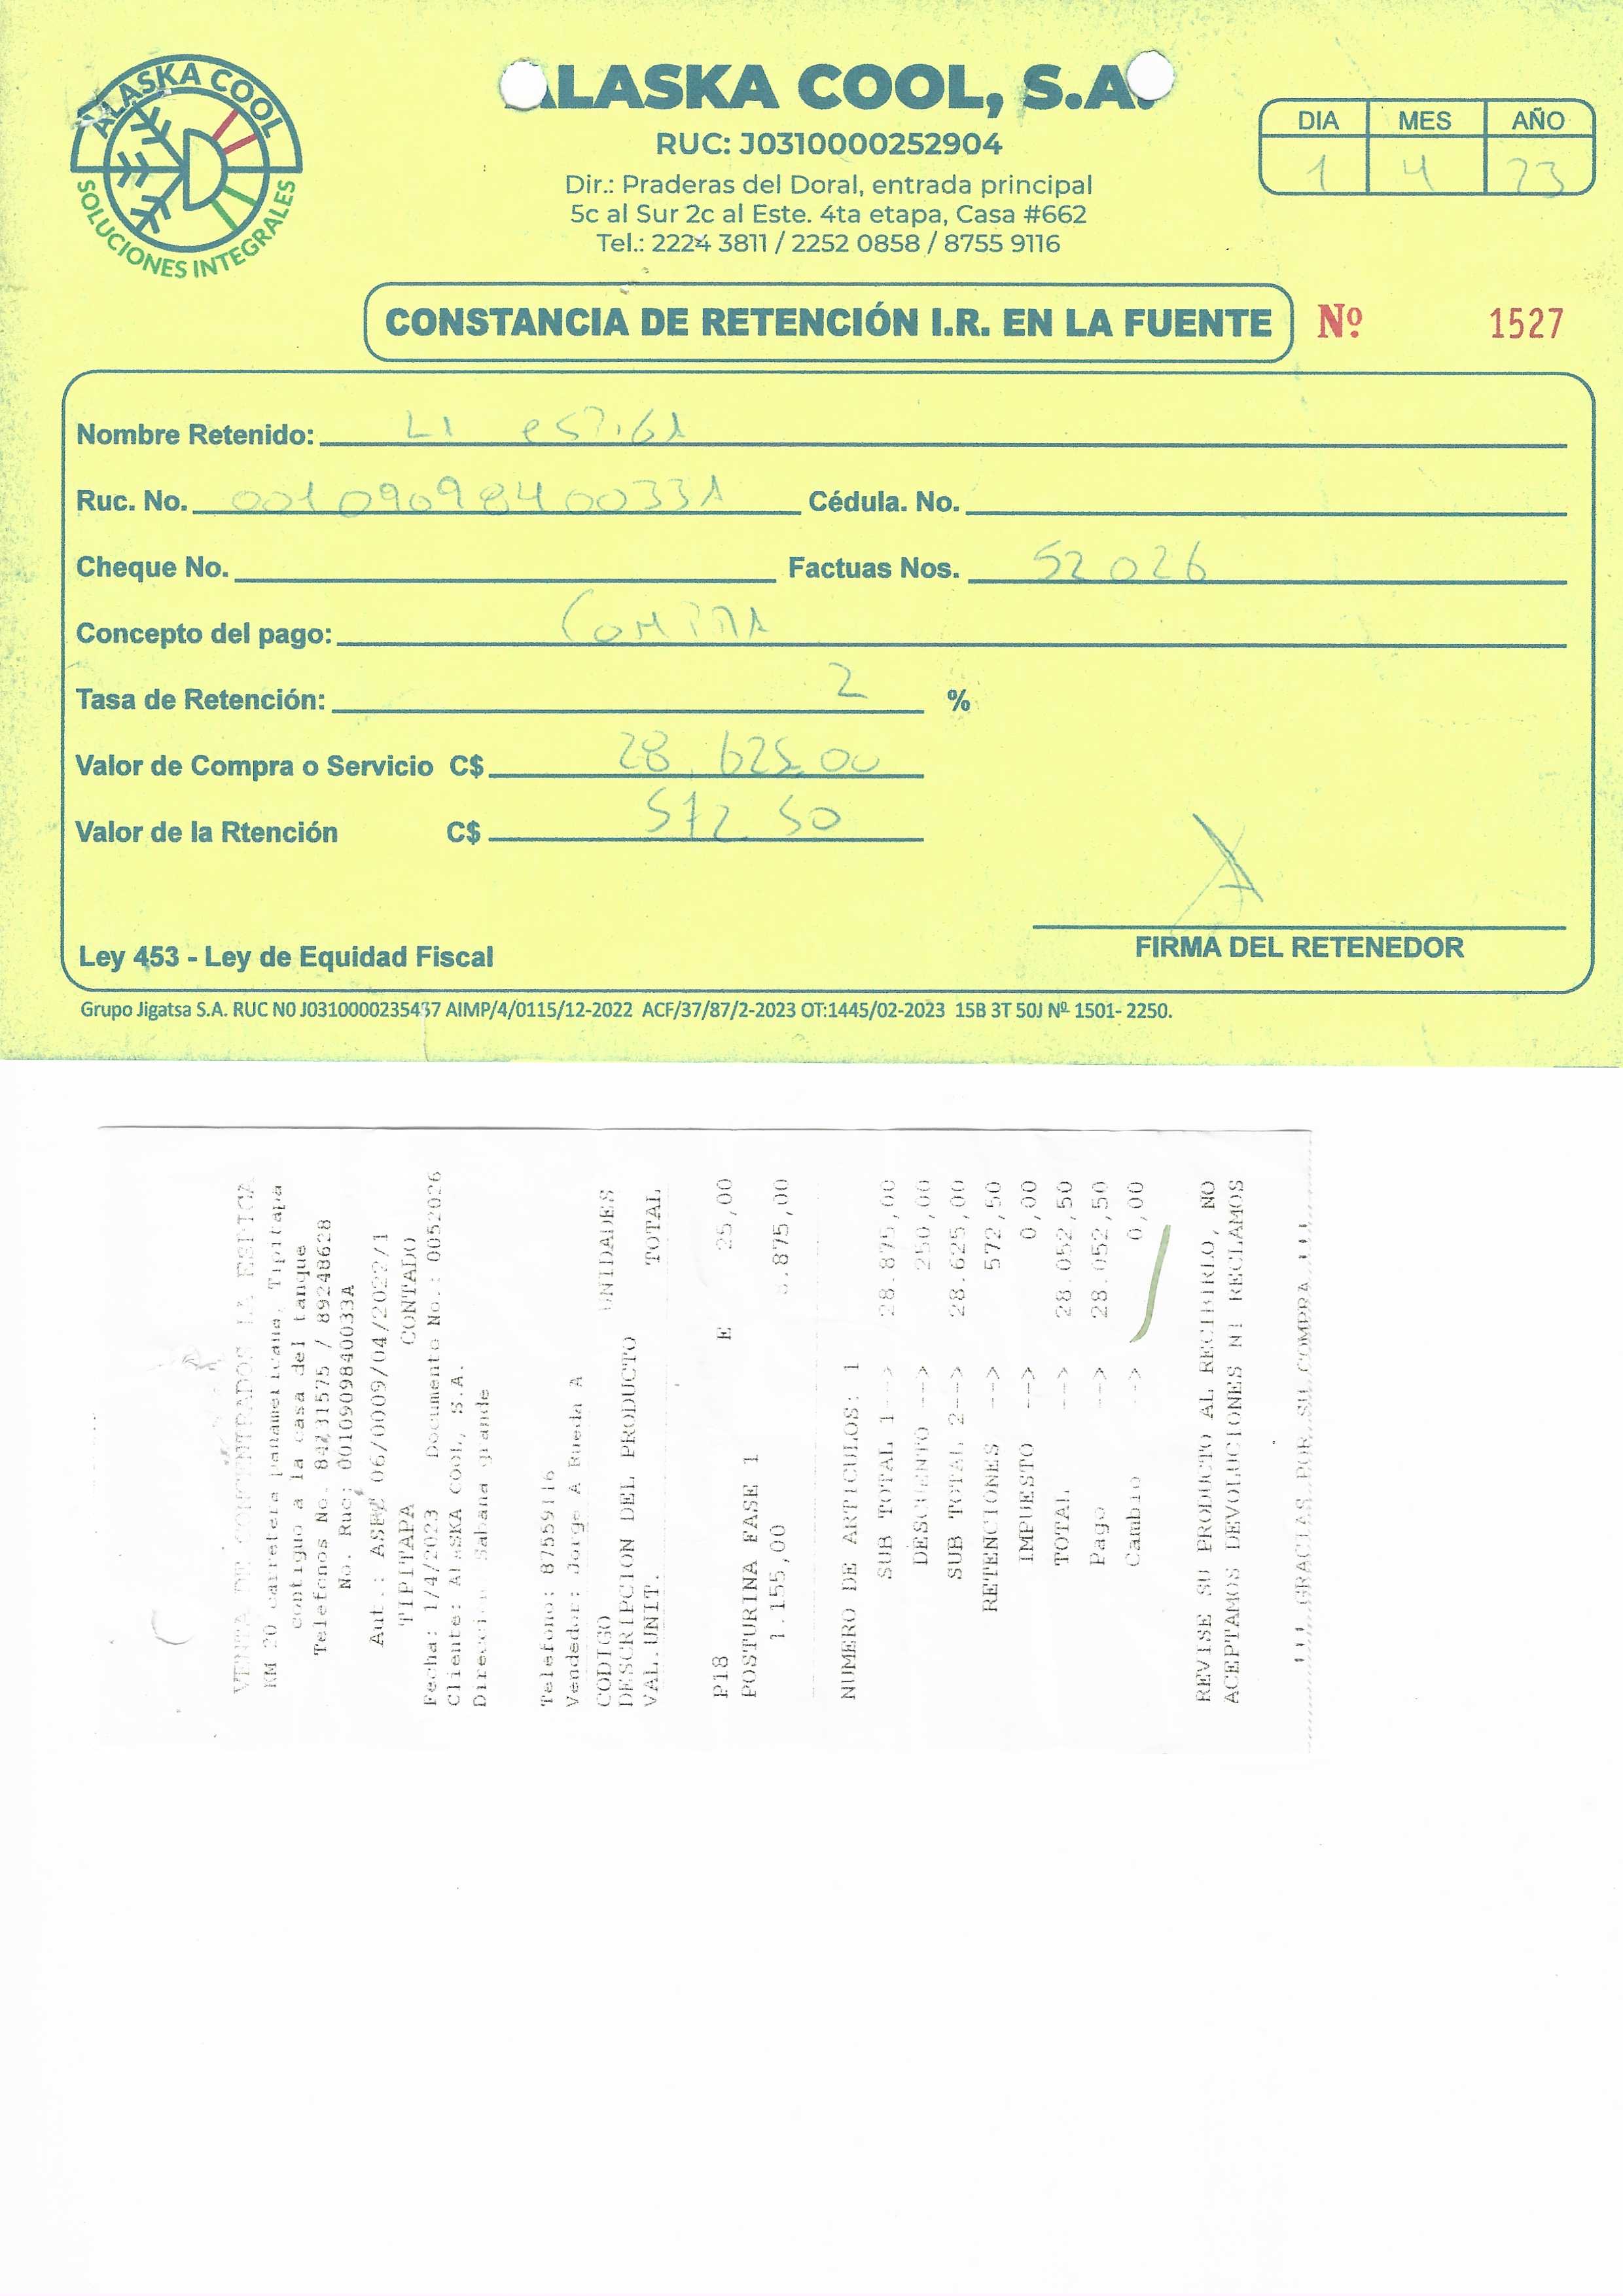 ALASKA COOL
SOLUCIONES INTEGRALES
ALASKA COOL, S.A.
RUC: J0310000252904
Dir.: Praderas del Doral, entrada principal
5c al Sur 2c al Este. 4ta etapa, Casa #662
Tel.: 2224 3811 / 2252 0858 / 8755 9116
DIA MES AÑO
1 4 23
CONSTANCIA DE RETENCIÓN I.R. EN LA FUENTE Nº 1527
Nombre Retenido: LA espiga
Ruc. No. 0010909840033A Cédula. No.
Cheque No. Factuas Nos. 52026
Concepto del pago: Compra
Tasa de Retención: 2 %
Valor de Compra o Servicio C$ 28,625.00
Valor de la Rtención C$ 572.50
FIRMA DEL RETENEDOR
Ley 453 - Ley de Equidad Fiscal
Grupo Jigatsa S.A. RUC N0 J0310000235437 AIMP/4/0115/12-2022 ACF/37/87/2-2023 OT:1445/02-2023 15B 3T 50J Nº 1501- 2250.
VENTA DE CONCENTRADOS LA ESPIGA
KM 20 carretera Panamericana, Tipitapa
contiguo a la casa del tanque
Telefonos No. 84231575 / 89248628
No. Ruc: 0010909840033A
Aut.: 06/0009/04/2022/1
TIPITAPA CONTADO
Fecha: 1/4/2023 Documento No.: 0052026
Cliente: AlaSKA COOL, S.A.
Direccion Sabana grande
Telefono: 87559116
Vendedor: Jorge A Rueda A
CODIGO UNIDADES
DESCRIPCION DEL PRODUCTO
VAL.UNIT. TOTAL
P18 E 25,00
POSTURINA FASE 1
1.155,00 .875,00
NUMERO DE ARTICULOS: 1
SUB TOTAL 1---> 28.875,00
DESCUENTO ---> 250,00
SUB TOTAL 2---> 28.625,00
RETENCIONES ---> 572,50
IMPUESTO ---> 0,00
TOTAL ---> 28.052,50
Pago ---> 28.052,50
Cambio ---> 0,00
REVISE SU PRODUCTO AL RECIBIRLO, NO
ACEPTAMOS DEVOLUCIONES NI RECLAMOS
!!! GRACIAS POR SU COMPRA !!!